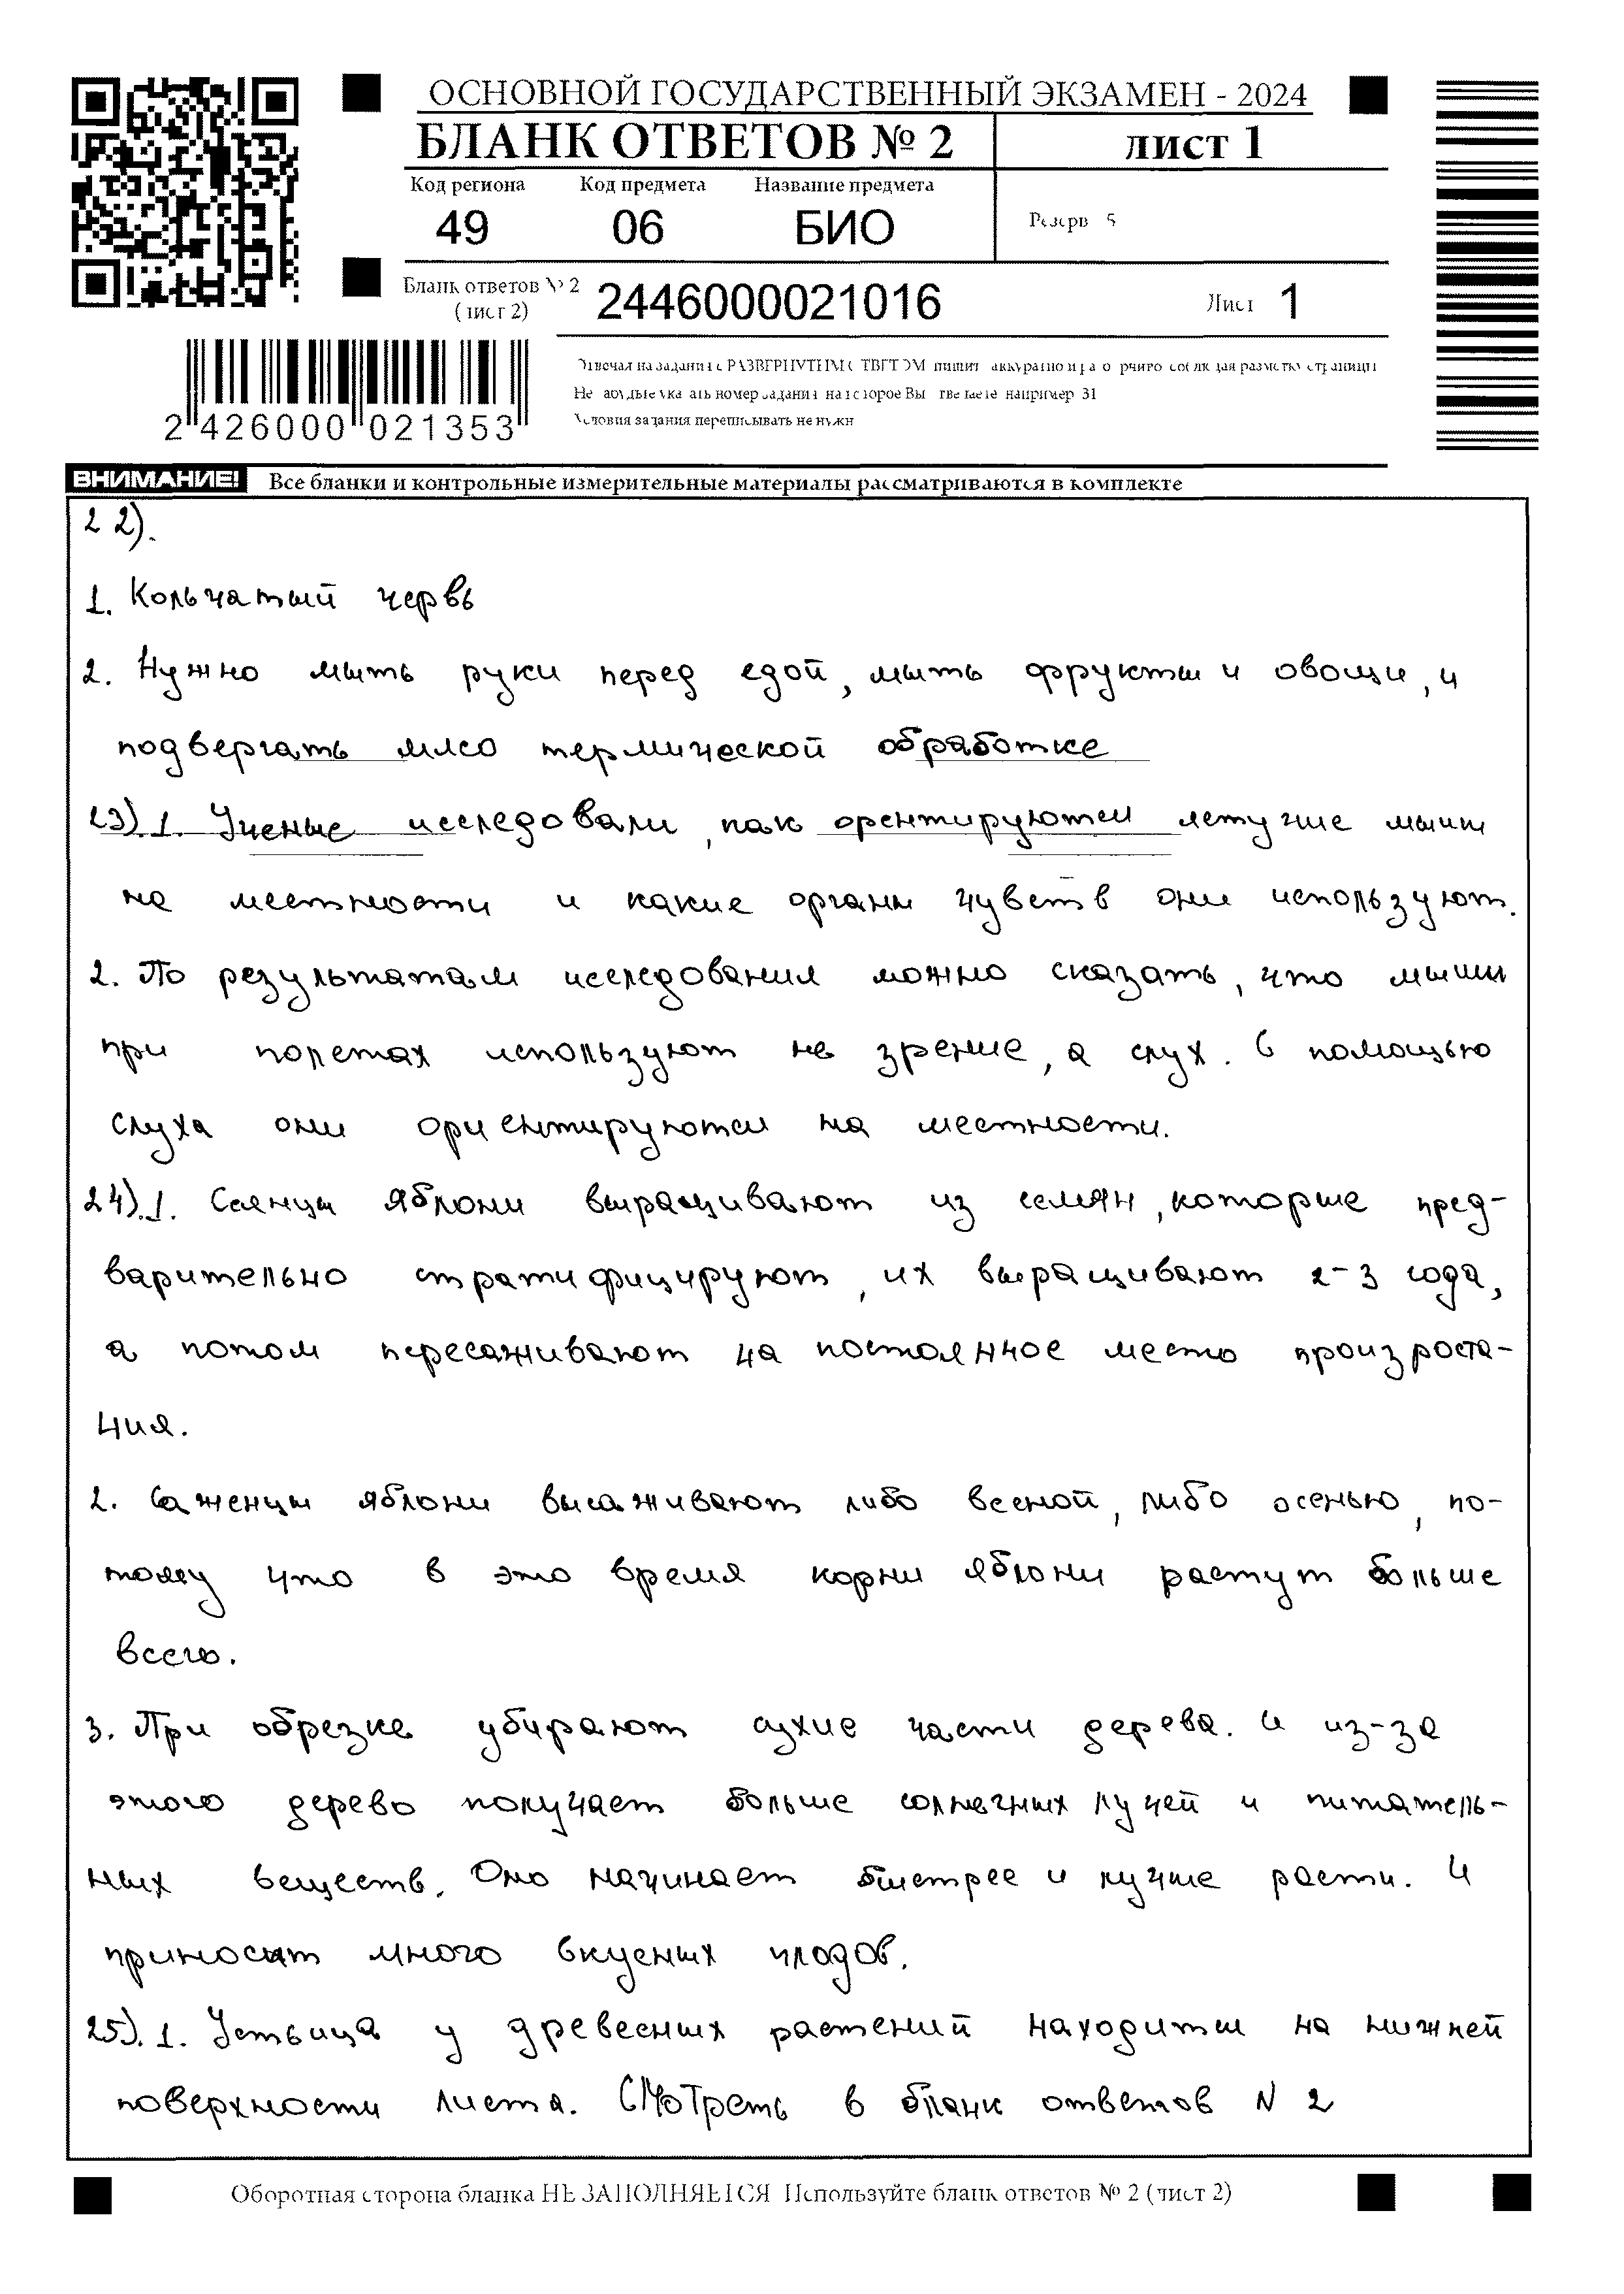 ОСНОВНОЙ ГОСУДАРСТВЕННЫЙ ЭКЗАМЕН - 2024
БЛАНК ОТВЕТОВ № 2
лист 1
Код региона
Код предмета
Название предмета
49
06
БИО
Резерв 5
Бланк ответов № 2
(лист 2)
2446000021016
Лист 1
2 426000 021353
Отвечая на задания с РАЗВЕРНУТЫМ ОТВЕТОМ пишите аккуратно и разборчиво соблюдая разметку страницы
Не забудьте указать номер задания на которое Вы отвечаете например 31
Условия задания переписывать не нужно
ВНИМАНИЕ! Все бланки и контрольные измерительные материалы рассматриваются в комплекте
22).
1. Кольчатый червь
2. Нужно мыть руки перед едой, мыть фрукты и овощи, и
подвергать мясо термической обработке
23). 1. Ученые исследовали, как орентируются летучие мыши
на местности и какие органы чувств они используют.
2. По результатам исследования можно сказать, что мыши
при полетах используют не зрение, а слух. С помощью
слуха они ориентируются на местности.
24). 1. Сеянцы яблони выращивают из семян, которые пред-
варительно стратифицируют, их выращивают 2-3 года,
а потом пересаживают на постоянное место произроста-
ния.
2. Саженцы яблони высаживают либо весной, либо осенью, по-
тому что в это время корни яблони растут больше
всего.
3. При обрезке убирают сухие части дерева. И из-за
этого дерево получает больше солнечных лучей и питатель-
ных веществ. Оно начинает быстрее и лучше расти. И
приносит много вкусных плодов.
25). 1. Устьица у древесных растений находится на нижней
поверхности листа. Смотреть в бланк ответов N 2
Оборотная сторона бланка НЕ ЗАПОЛНЯЕТСЯ Используйте бланк ответов № 2 (лист 2)